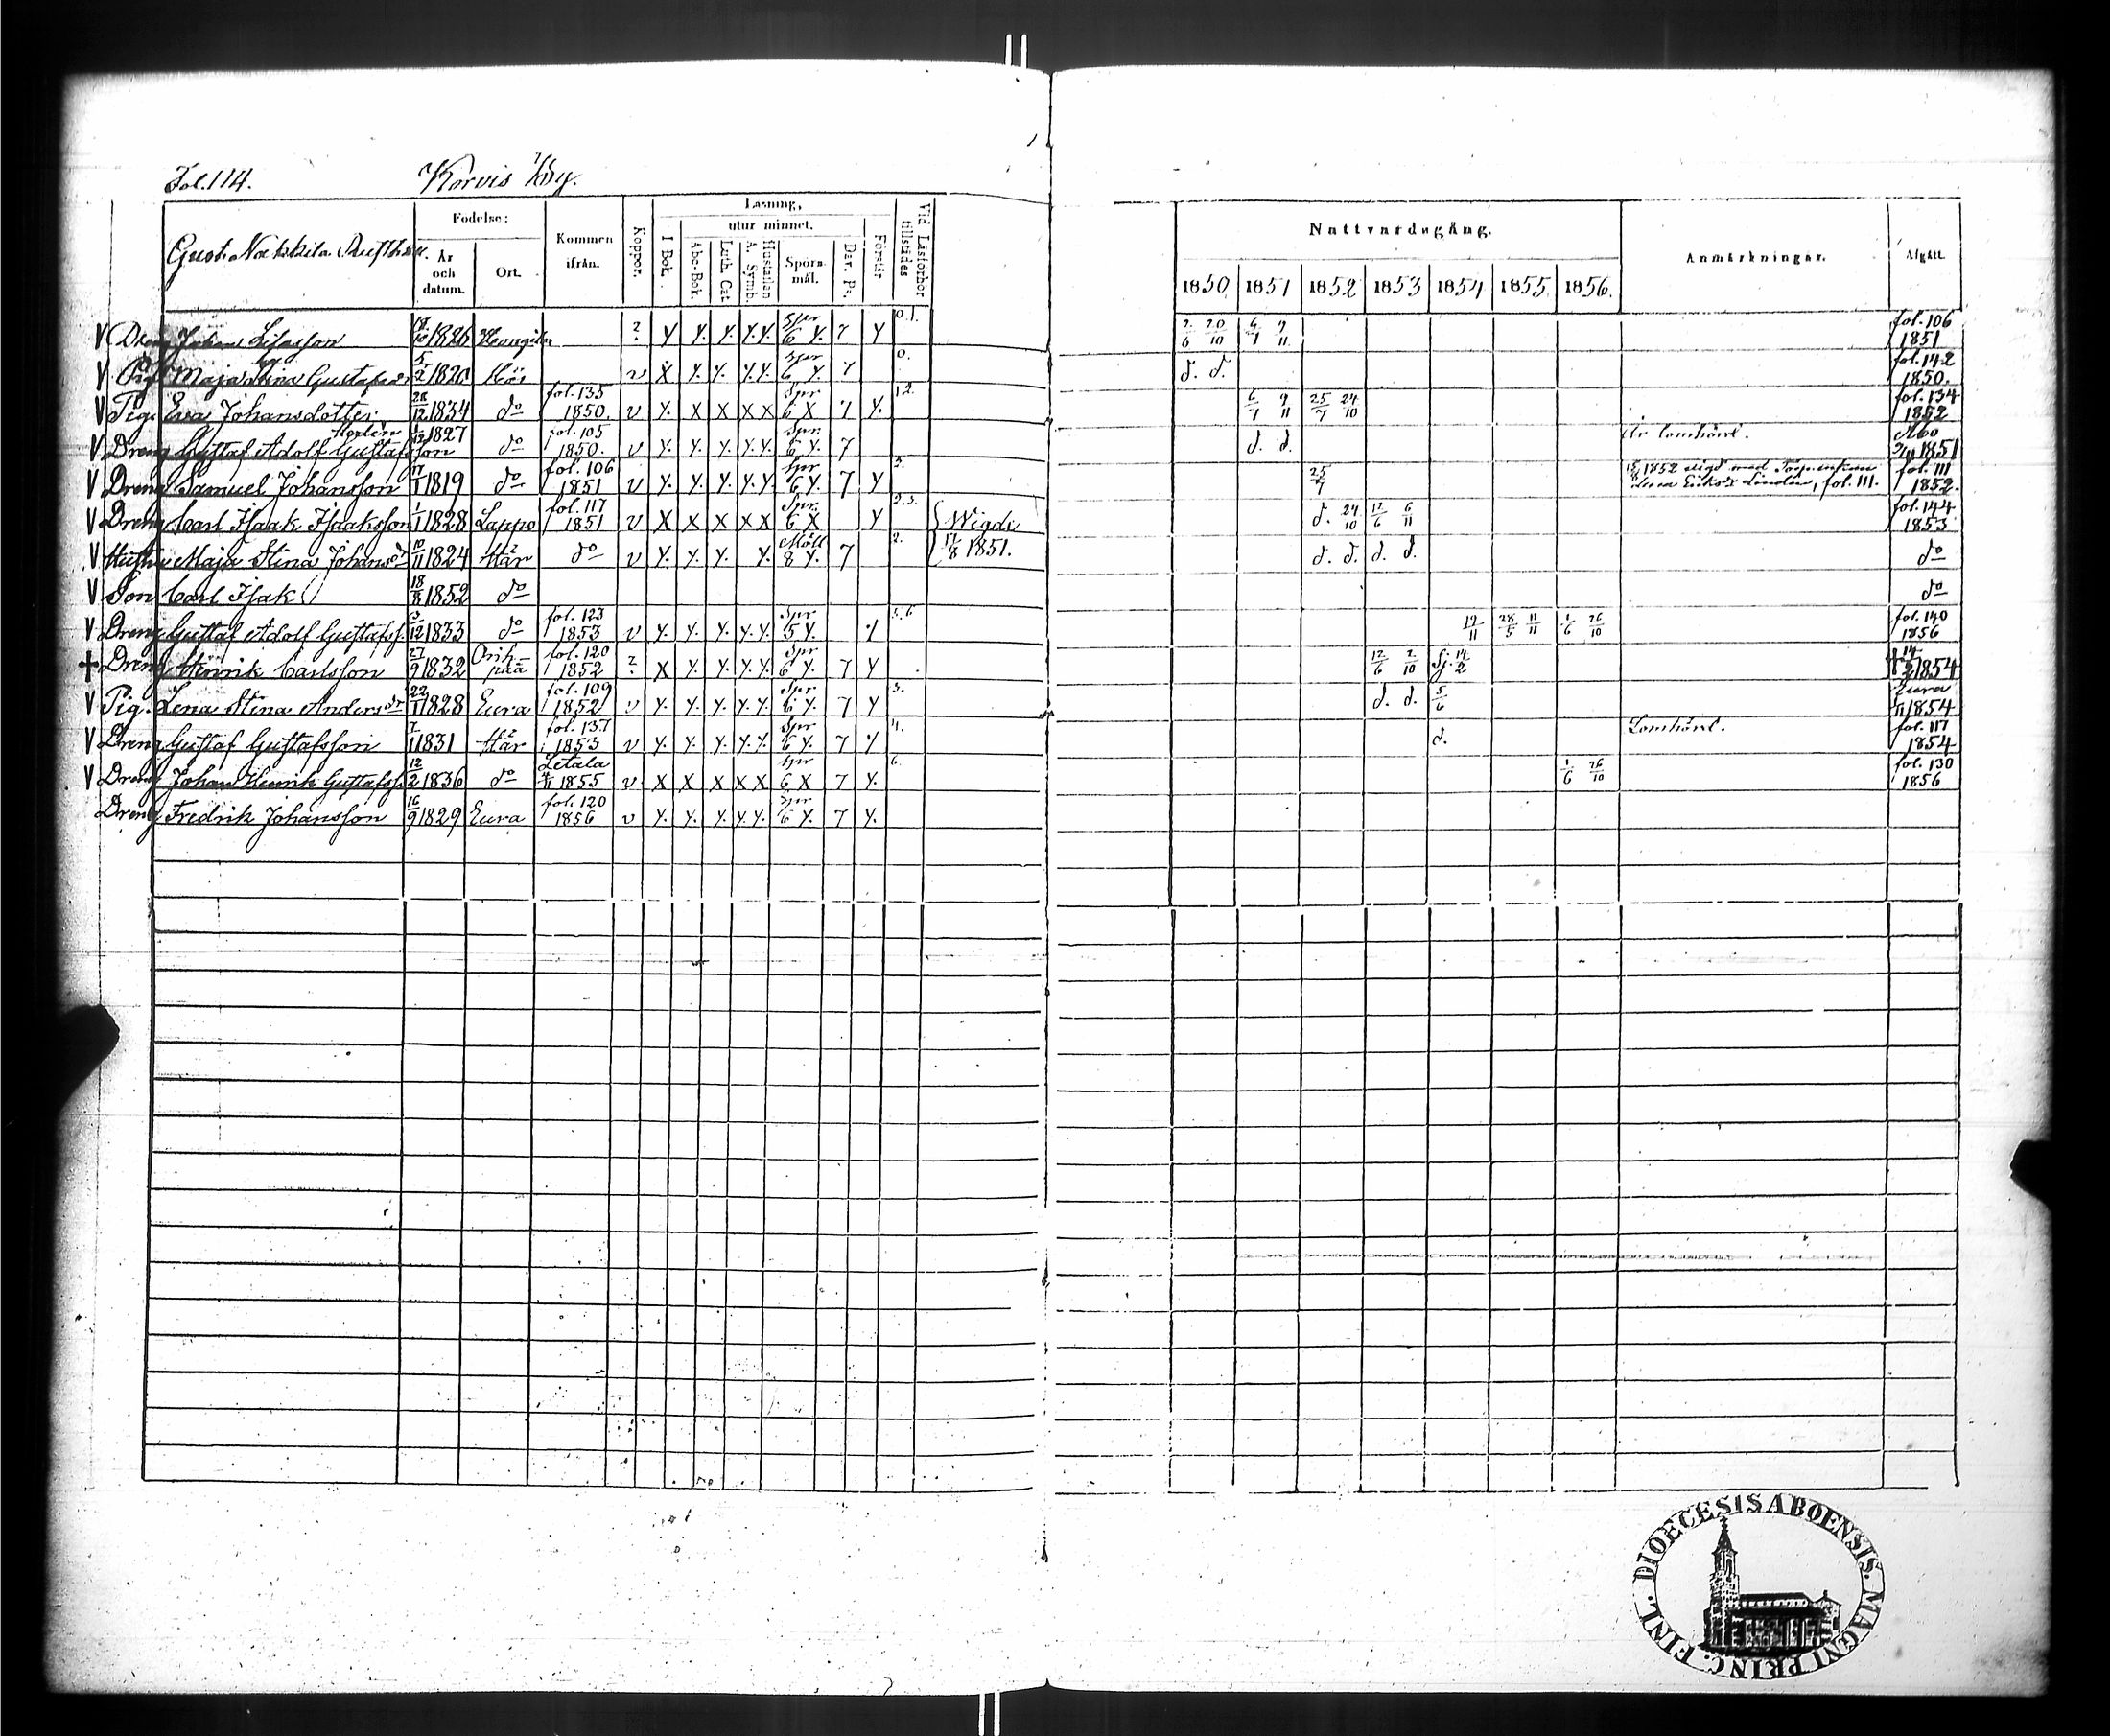 Fol. 114. Korvis By.
Gust. Nackkila Rusthåll.
Fodelse: År och datum. Ort. Kommen ifrån. Koppor. Läsning, I Bok. utur minnet. Abc-Bok. Luth. Cat. A. Symb. Hustaflan Sporsmål. Dav. Ps. Förstår Vid Läsförhör tillstädes
Nattvardsgång. 1850 1851 1852 1853 1854 1855 1856. Anmärkningar. Afgått.
V Dreng Johan 18/10 1826 ? y y. y. y. y. Spr 6 y. 7 y 0.1. 2/6 20/10 6/7 9/11 fol. 106 1851
V Pig. Maja Stina Gustafsdr 5/2 1820 Här v x y. y. y. y. Spr 6 y 7 0. d. d. fol. 142 1850.
V Pig. Eva Johansdotter 28/12 1834 do fol. 135 1850. v y. x x x x Spr 6 x 7 y. 1.2. 6/7 9/11 25/7 24/10 fol. 134 1852
V Dreng Gustaf Adolf Gustafsson 1/12 1827 do fol. 105 1850. v y. y. y. y. y. Spr. 6 y. 7 d. d. Är Lomhörd. Åbo 1851
V Dreng Samuel Johansson 17/1 1819 do fol. 106 1851 v y. y. y. y. y. Spr 6 y. 7 y 3. 25/7 1852 vigd med Lena Eriksdr Lindén, fol. 111. fol. 111 1852.
V Dreng Carl Isaak Isaaksson 1/1 1828 Lappo fol. 117 1851 v x x x x x Spr. 6 x y 2.3. Wigde d. 24/10 12/6 6/11 fol. 144 1853
V Hustru Maja Stina Johansdr 10/11 1824 Här do v y. y. y. y. Måll 8 y. 7 2. 17/8 1851. d. d. d. d. do
V Son Carl Isak 18/8 1852 do do
V Dreng Gustaf Adolf Gustafss. 3/12 1833 do fol. 123 1853 v y. y. y. y. y. Spr 5 y. y 5.6 19/11 28/5 11/11 1/6 26/10 fol. 140 1856
† Dreng Henrik Carlsson 27/9 1832 Orihpää fol. 120 1852 ? x y. y. y. y. Spr 6 y. 7 y 12/6 2/10 Sj. 14/2 † 14/2 1854
V Pig. Lena Stina Andersdr 22/1 1828 Eura fol. 109 1852 v y. y. y. y. y. Spr 6 y. 7 y 3. d. d. 5/6 Eura 1854
V Dreng Gustaf Gustafsson 7/1 1831 Här fol. 137 1853 v y. y. y. y. y. Spr 6 y. 7 y 4. d. Lomhörd. fol. 117 1854
V Dreng Johan Henrik Gustafss. 12/2 1836 do Letala 1855 v x x x x x Spr 6 x 7 y. 6. 1/6 26/10 fol. 130 1856
Dreng Fredrik Johansson 16/9 1829 Eura fol. 120 1856 v y. y. y. y. y. Spr 6 y. 7 y.
FINL. DIOECESIS ABOENSIS. MAGNI PRINC.